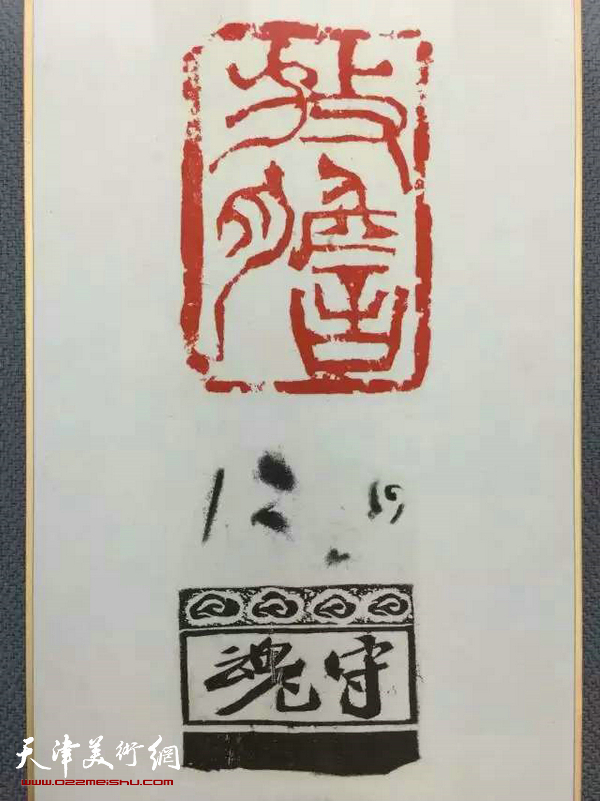 放
膽
守魂
天津美術網
www.022meishu.com